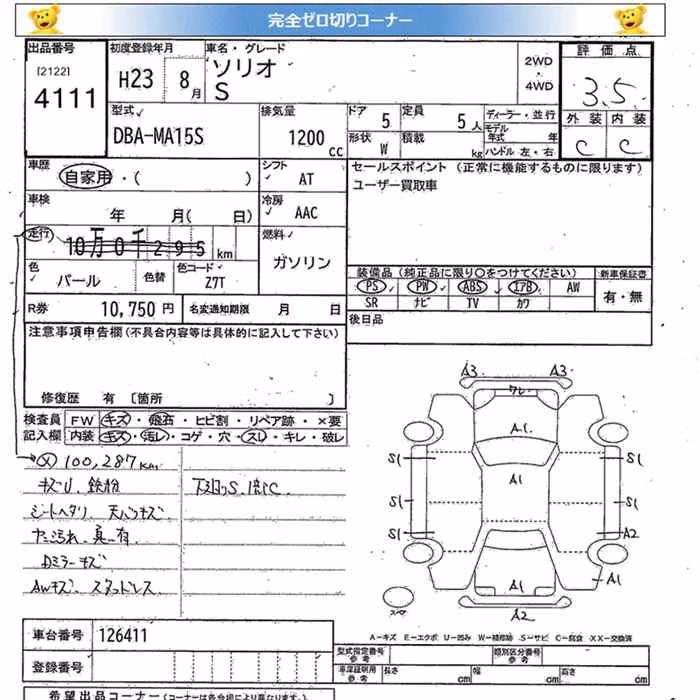 完全ゼロ切りコーナー
出品番号
[2122]
4111
初度登録年月
H23 8月
車名・グレード
ソリオ
S
2WD
4WD
評価点
3.5
外装 内装
C C
型式
DBA-MA15S
排気量
1200 CC
ドア 5
形状 W
定員 5人
積載 kg
ディーラー・並行
モデル年式 年
ハンドル 左・右
車歴
自家用・( )
シフト
AT
セールスポイント (正常に機能するものに限ります)
ユーザー買取車
車検
年 月( 日)
冷房
AAC
走行
10万0千295 km
燃料
ガソリン
色
パール
色替
色コード
Z7T
装備品 (純正品に限り○をつけてください)
新車保証書
PS PW ABS エアB AW
SR ナビ TV カワ
有・無
R券 10,750円
名変通知期限 月 日
後日品
注意事項申告欄 (不具合内容等は具体的に記入して下さい)
修復歴 有 〔箇所 〕
検査員 FW キズ・飛石・ヒビ割・リペア跡・×要
記入欄 内装 キズ・汚レ・コゲ・穴・スレ・キレ・破レ
100,287km
キズU、鉄粉
下廻りS、
シートヘタリ 天バリキズ
Dミラーキズ
AWキズ スタッドレス
A3 A3
フレ
A1
S1 A1 S1
S1 S1
S1 A2
A1
A1
A2
スペア
A-キズ E-エクボ U-凹み W-補修跡 S-サビ C-腐食 XX-交換済
車台番号 126411
登録番号
型式指定番号 参考
類別区分番号 参考
車庫証明用 参考 長さ cm 幅 cm 高さ cm
希望出品コーナー (コーナーは各会場により異なります)